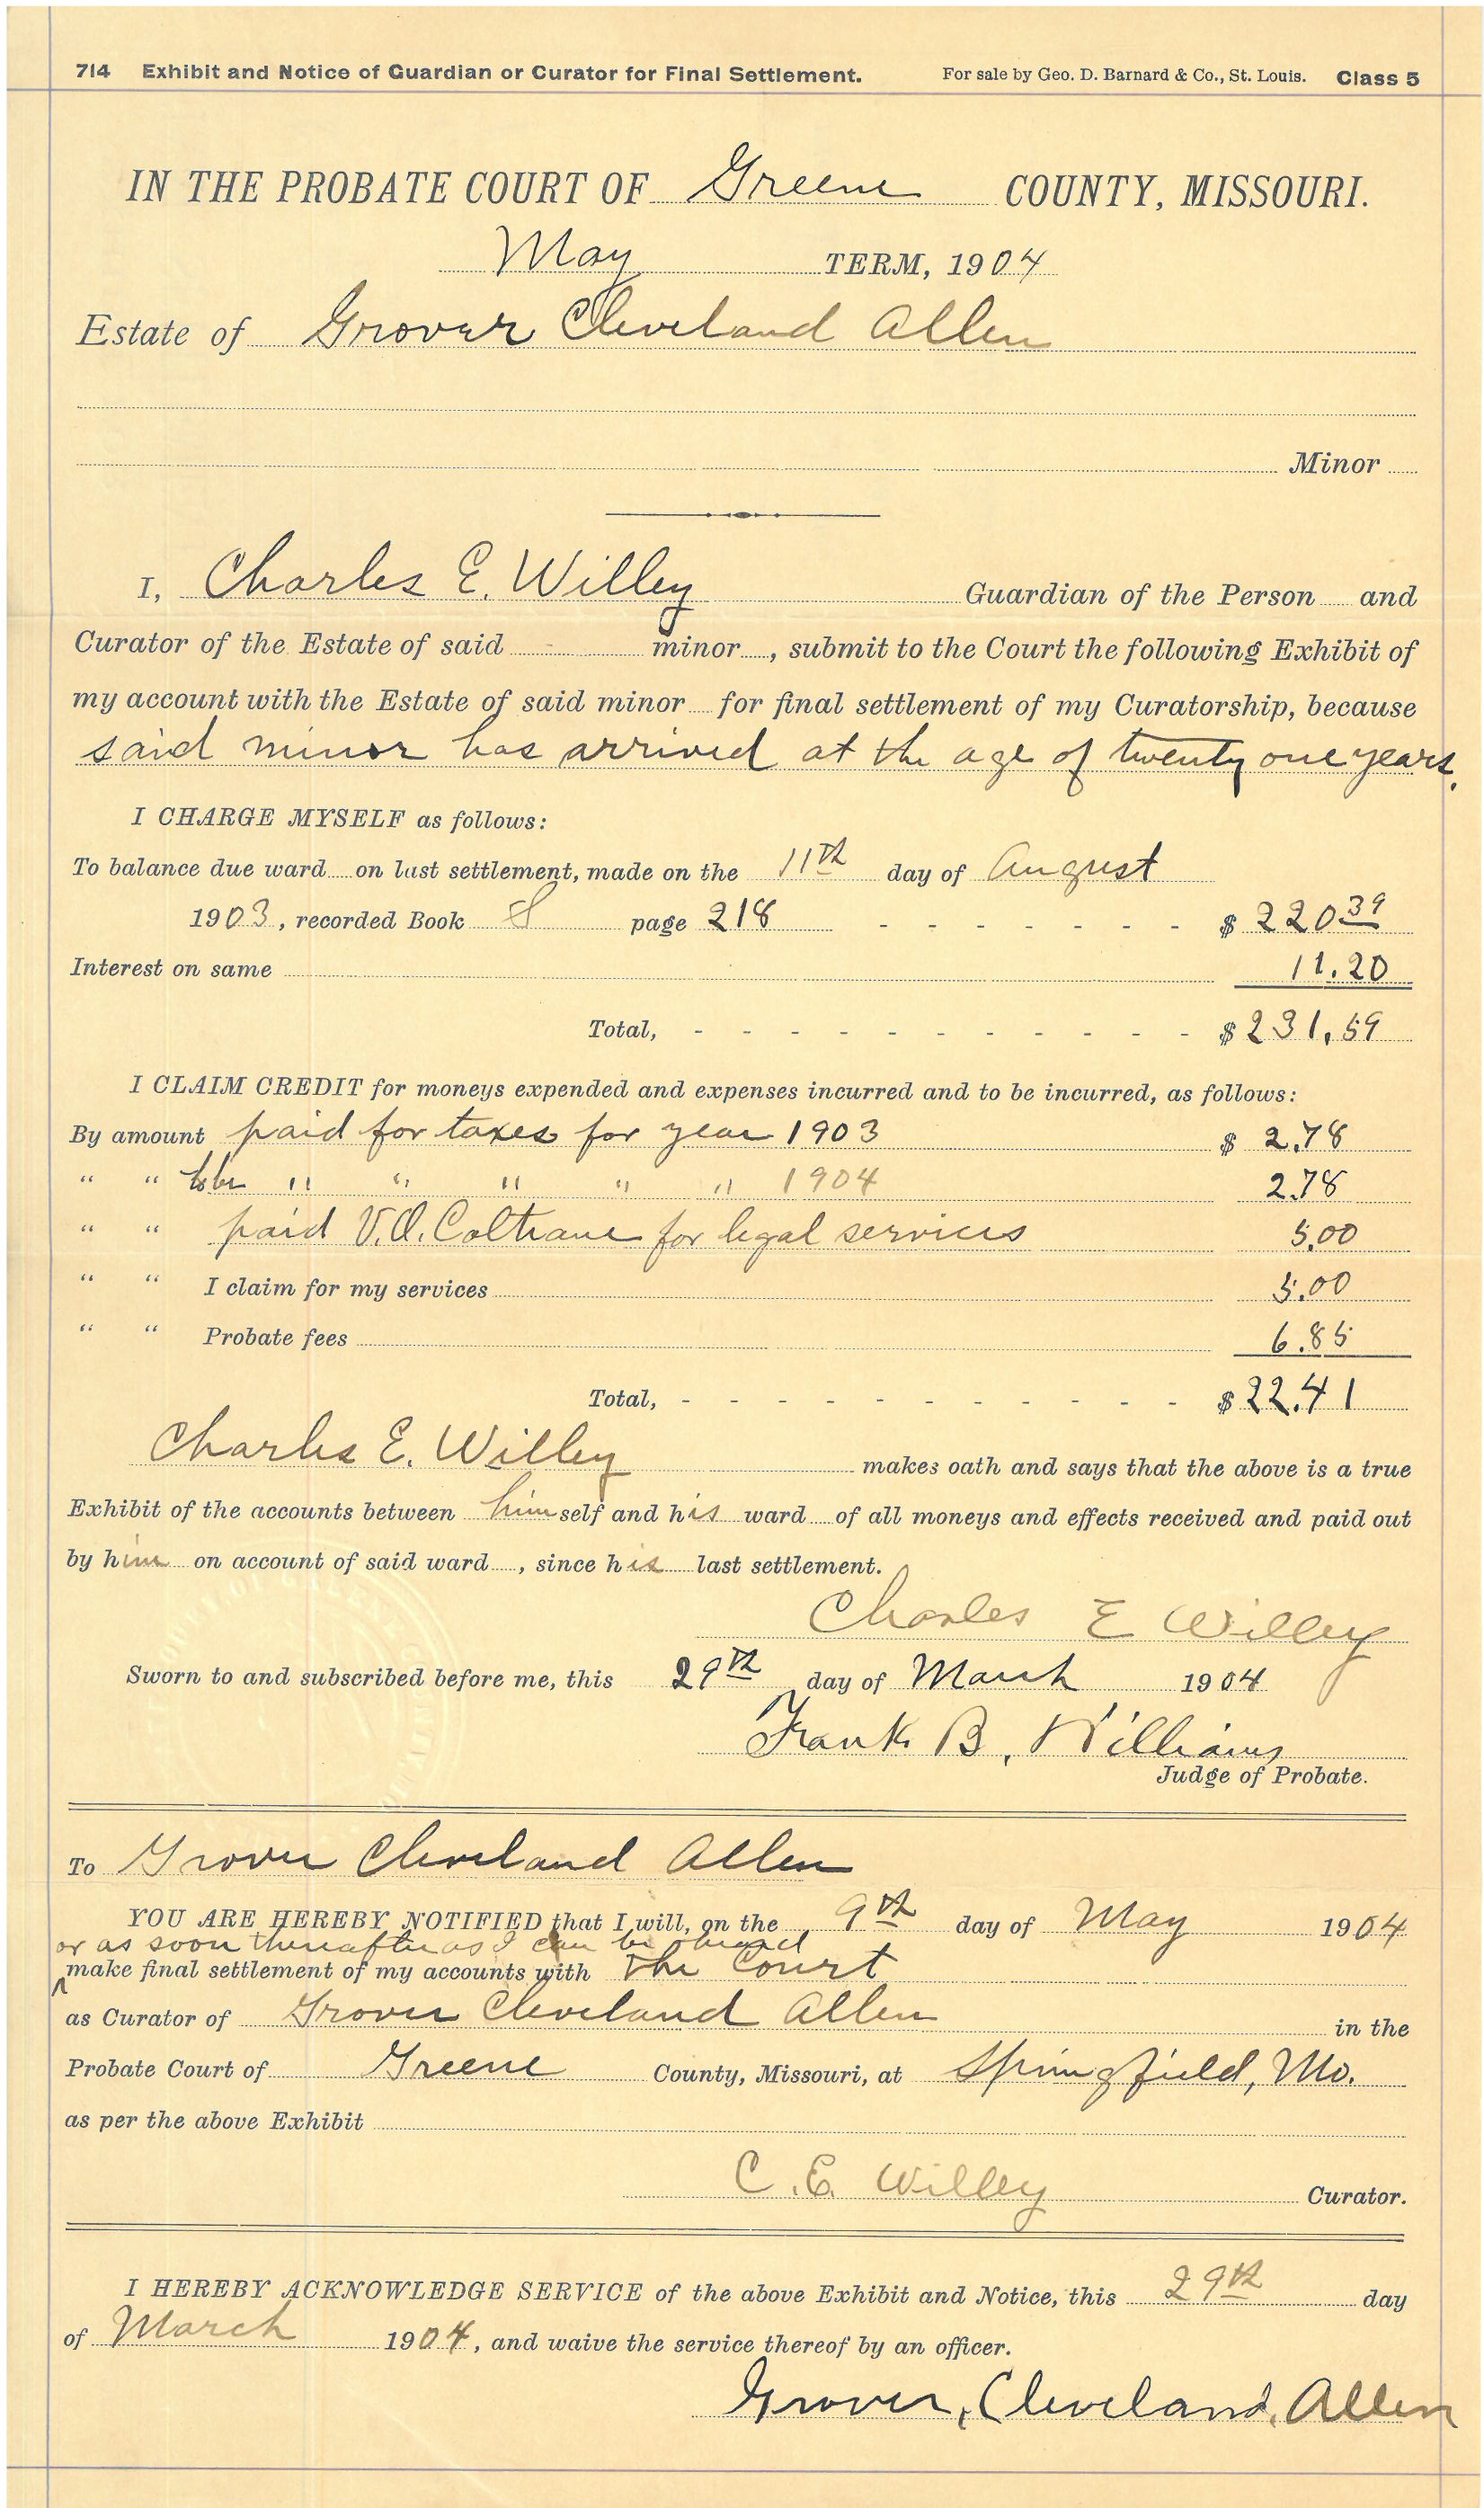 714 Exhibit and Notice of Guardian or Curator for Final Settlement. For sale by Geo. D. Barnard & Co., St. Louis. Class 5
IN THE PROBATE COURT OF Greene COUNTY, MISSOURI.
May TERM, 1904
Estate of Grover Cleveland Allen
Minor
I, Charles E. Willey Guardian of the Person and
Curator of the Estate of said minor , submit to the Court the following Exhibit of
my account with the Estate of said minor for final settlement of my Curatorship, because
said minor has arrived at the age of twenty one years.
I CHARGE MYSELF as follows:
To balance due ward on last settlement, made on the 11th day of August
1903, recorded Book page 218 - - - - - - - $ 220 39
Interest on same 11.20
Total, - - - - - - - - - - - $ 231,59
I CLAIM CREDIT for moneys expended and expenses incurred and to be incurred, as follows:
By amount paid for taxes for year 1903 $ 2.78
" " to be " " " " " 1904 2.78
" " paid V.O. Coltrane for legal services 5.00
" " I claim for my services 5.00
" " Probate fees 6.85
Total, - - - - - - - - - - - $ 22.41
Charles E. Willey makes oath and says that the above is a true
Exhibit of the accounts between himself and his ward of all moneys and effects received and paid out
by him on account of said ward , since his last settlement.
Charles E Willey
Sworn to and subscribed before me, this 29th day of March 1904
Frank B. Williams
Judge of Probate.
To Grover Cleveland Allen
YOU ARE HEREBY NOTIFIED that I will, on the 9th day of May 1904
or as soon thereafter as I can be heard
make final settlement of my accounts with The Court
as Curator of Grover Cleveland Allen in the
Probate Court of Greene County, Missouri, at Springfield, Mo.
as per the above Exhibit
C. E. Willey Curator.
I HEREBY ACKNOWLEDGE SERVICE of the above Exhibit and Notice, this 29th day
of March 1904, and waive the service thereof by an officer.
Grover, Cleveland, Allen